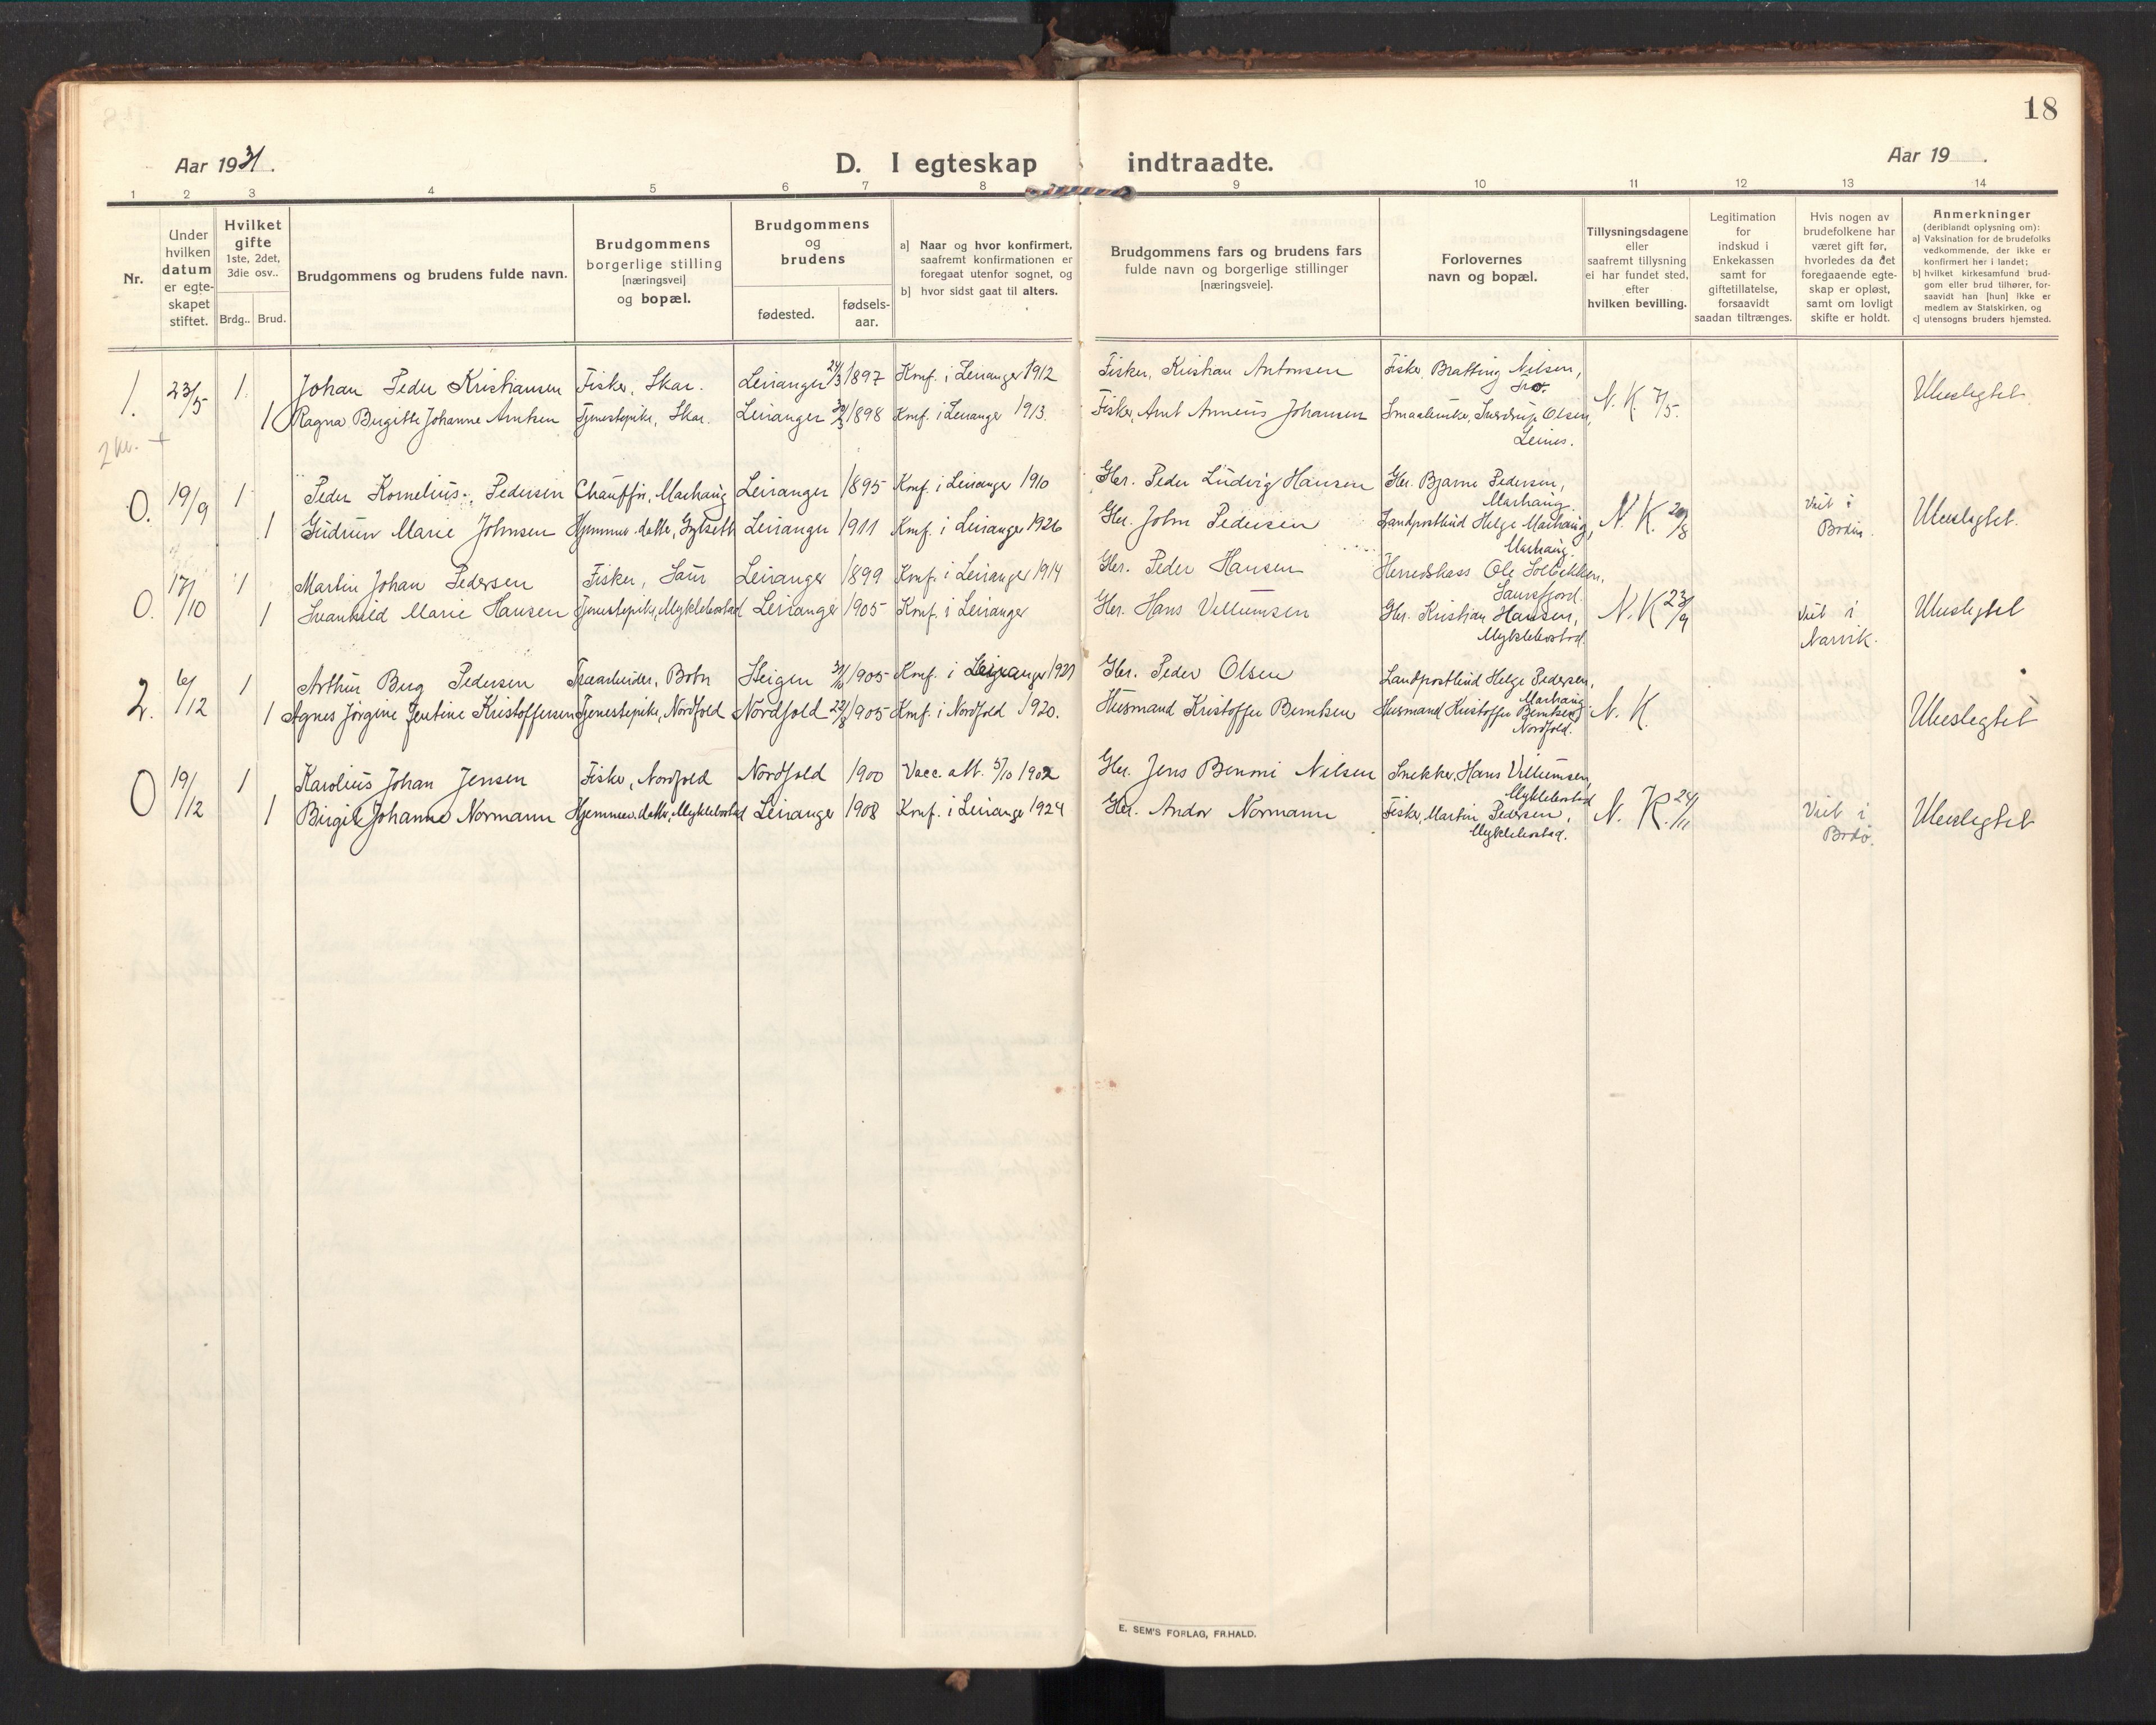 18
Aar 1931.
D. I egteskap indtraadte.
Aar 19 .
1 2 3 4 5 6 7 8 9 10 11 12 13 14
Nr.
Under hvilken datum er egte-skapet stiftet.
Hvilket gifte 1ste, 2det, 3die osv..
Brdg.. Brud.
Brudgommens og brudens fulde navn.
Brudgommens borgerlige stilling [næringsvei] og bopæl.
Brudgommens og brudens
fødested. fødsels-aar.
a] Naar og hvor konfirmert, saafremt konfirmationen er foregaat utenfor sognet, og
b] hvor sidst gaat til alters.
Brudgommens fars og brudens fars fulde navn og borgerlige stillinger [næringsveie].
Forlovernes navn og bopæl.
Tillysningsdagene eller saafremt tillysning ei har fundet sted, efter hvilken bevilling.
Legitimation for indskud i Enkekassen samt for giftetillatelse, forsaavidt saadan tiltrænges.
Hvis nogen av brudefolkene har været gift før, hvorledes da det foregaaende egte-skap er opløst, samt om lovligt skifte er holdt.
Anmerkninger (deriblandt oplysning om):
a] Vaksination for de brudefolks vedkommende, der ikke er konfirmert her i landet;
b] hvilket kirkesamfund brud-gom eller brud tilhører, for-saavidt han [hun] ikke er medlem av Statskirken, og
c] utensogns bruders hjemsted.
1. 23/5 1. Johan Peder Kristiansen Fisker, Skar. Leiranger 24/3 1897 Konf. i Leiranger 1912 Fisker, Kristian Antonsen Fisker, Bratting Nilsen,
1 Ragna Birgitte Johanne Arntsen Tjenestepike, Skar. Leiranger 1898 Konf. i Leiranger 1913. Fisker, Arnt Anneus Johansen Smaabruker, Sverdrup Olsen, Leines. N. K. 7/5. Ubeslegtet
0. 19/9 1 Peder Kornelius Pedersen Chauffør, Marhaug Leiranger 1895 Konf. i Leiranger 1910 Gbr. Peder Ludvig Hansen Gbr. Bjarne Pedersen, Marhaug.
1 Gudrun Marie Johnsen Hjemmev. datter, Gylseth Leiranger 1911 Konf. i Leiranger 1926 Gbr. John Pedersen Landpostbud Helge Marhaug, Marhaug. N. K. 20/8 Viet i Bodin. Ubeslegtet.
0. 17/10 1 Martin Johan Pedersen Fisker, Laur Leiranger 1899 Konf. i Leiranger 1914 Gbr. Peder Hansen Herredskass Ole Solbakken, Laursfjord.
1 Svanhild Marie Hansen Tjenestepike, Myklebostad Leiranger 1905 Konf. i Leiranger Gbr. Hans Villumsen Gbr. Kristian Hansen, Myklebostad. N. K 23/9 Viet i Narvik. Ubeslegtet
2. 6/12 1 Arthur Berg Pedersen Træarbeider, Botn Steigen 31/10 1905 Konf. i Leiranger 1921 Gbr. Peder Olsen Landpostbud Helge Pedersen, Marhaug.
1 Agnes Jørgine Jentine Kristoffersen Tjenestepike, Nordfold Nordfold 22/8 1905 Konf. i Nordfold 1920. Husmand Kristoffer Berntsen Husmand Kristoffer Berntsen, Nordfold. N. K. Ubeslegtet
0 19/12 1 Karolius Johan Jensen Fisker, Nordfold Nordfold 1900 Vacc. att. 5/10 1902 Gbr. Jens Benoni Nilsen Snekker, Hans Villumsen, Myklebostad
1 Birgit Johanne Normann Hjemmev. datter, Myklebostad Leiranger 1908 Konf. i Leiranger 1924 Gbr. Andor Normann Fisker, Martin Pedersen, Myklebostad. N. K. 24/11 Viet i Bodø. Ubeslegtet
E. SEM'S FORLAG, FR.HALD.